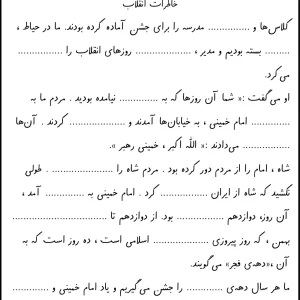 خاطرات انقلاب
کلاس‌ها و ............... مدرسه را برای جشن آماده کرده بودند. ما در حیاط ،
......... بسته بودیم و مدیر ، .................... روزهای انقلاب را ................
می‌کرد.
او می‌گفت :« شما آن روزها که به .............. نیامده بودید . مردم ما به
.............. امام خمینی ، به خیابان‌ها آمدند و .................... کردند . آن‌ها
................. می‌دادند :« الله اکبر ، خمینی رهبر ».
شاه ، امام را از مردم دور کرده بود . مردم شاه را ...................... . طولی
نکشید که شاه از ایران ................. کرد . امام خمینی به .............. آمد ،
آن روز، دوازدهم ................. بود. از دوازدهم تا ..................................
بهمن ، که روز پیروزی .................... اسلامی است ، ده روز است که به
آن ،«دهه‌ی فجر» می‌گویند.
ما هر سال دهه‌ی ............. را جشن می‌گیریم و یاد امام خمینی و .............